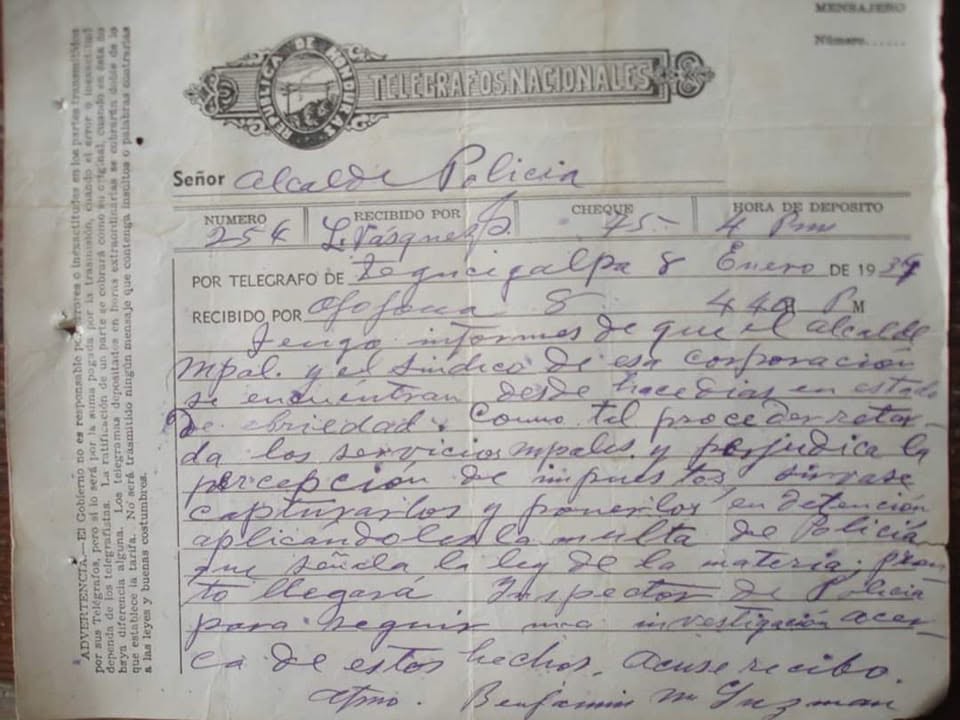 MENSAJERO
Número......
REPUBLICA DE HONDURAS
TELEGRAFOS NACIONALES
Señor Alcalde Policia
NUMERO
254
RECIBIDO POR
L. Vásquez
CHEQUE
75-
HORA DE DEPOSITO
4 Pm
POR TELEGRAFO DE Tegucigalpa 8 Enero DE 1939
RECIBIDO POR Ojojona 8 4 40 H P M
Tengo informes de que el alcalde
mpal. y el síndico de esa corporación
se encuentran desde hace dias en estado
de ebriedad. Como tal proceder retar-
da los servicios mpales. y perjudica la
percepción de impuestos, sírvase
capturarlos y ponerlos en detención
aplicándoles la multa de Policía
que señala la ley de la materia; pron
to llegará Inspector de Policia
para seguir una investigación acer-
ca de estos hechos. Acuse recibo.
Atmo. Benjamin M Guzman
ADVERTENCIA.—El Gobierno no es responsable por errores o inexactitudes en los partes transmitidos
por sus Telégrafos, pero sí lo será por la suma pagada por la trasmisión, cuando el error o inexactitud
dependa de los telegrafistas. La ratificación de un parte se cobrará como su original, cuando en ésta no
haya diferencia alguna. Los telegramas depositados en horas extraordinarias se cobrarán dobles de lo
que establece la tarifa. No será trasmitido ningún mensaje que contenga insultos o palabras contrarias
a las leyes y buenas costumbres.